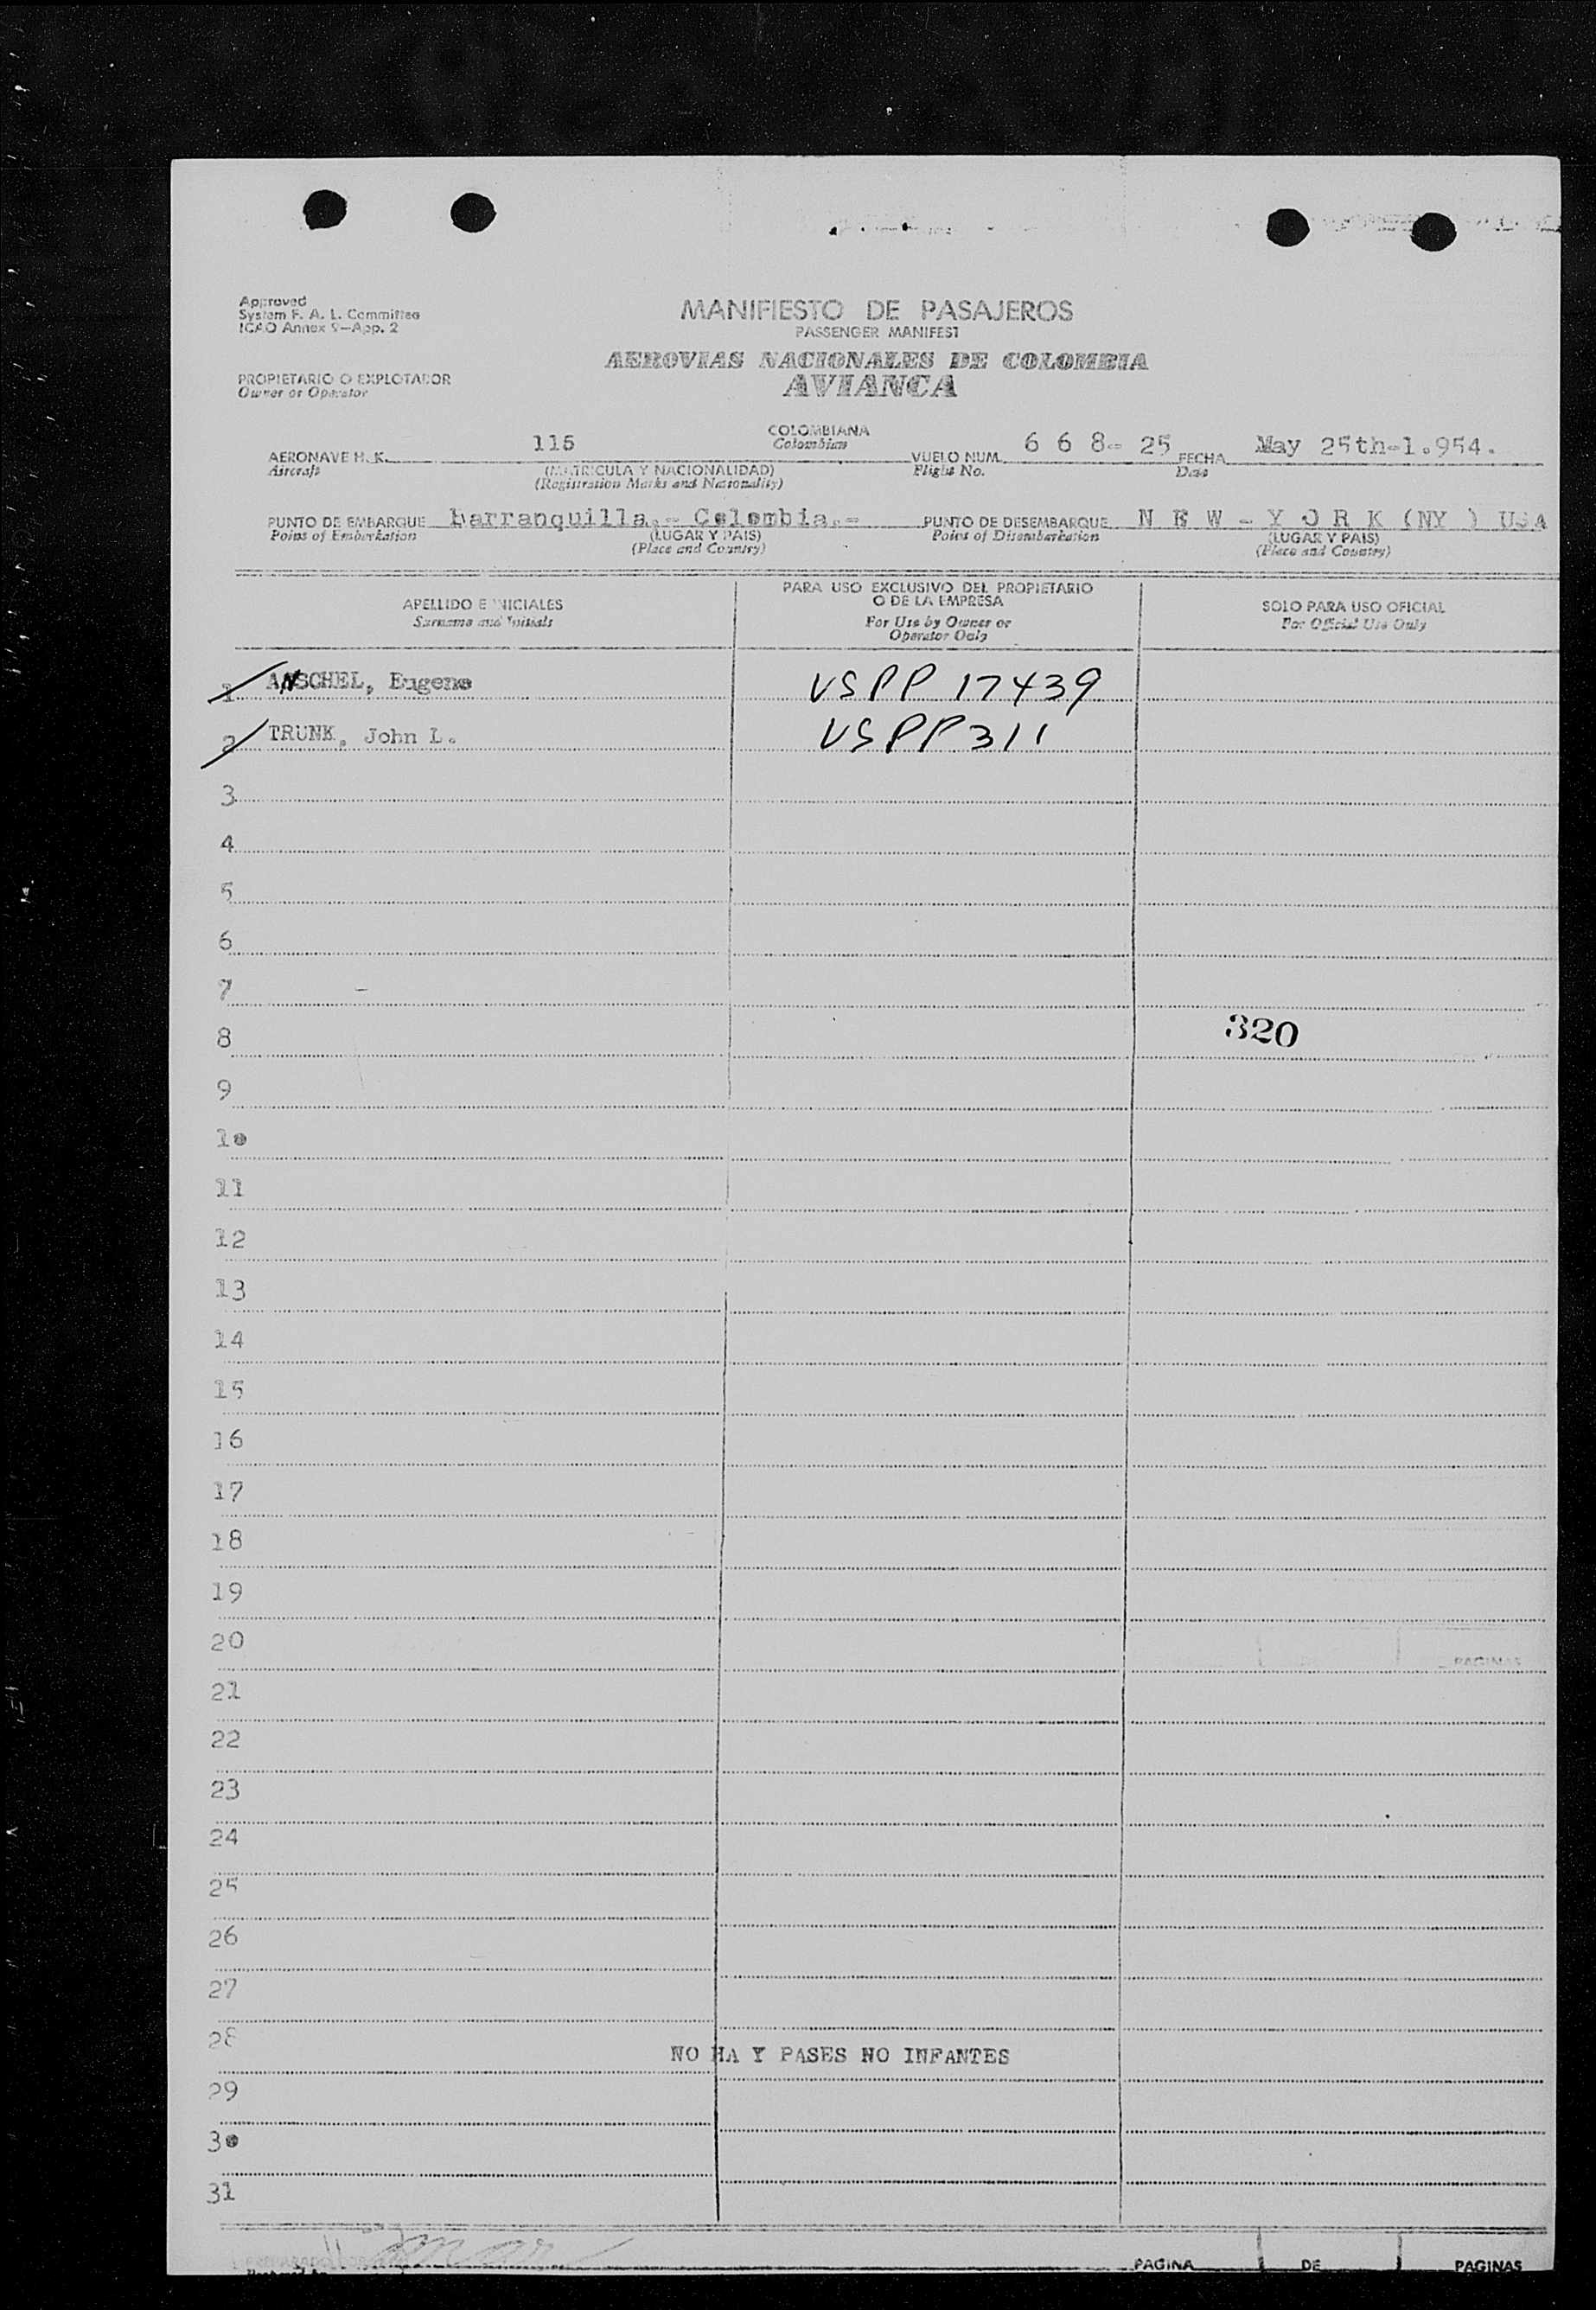 Approved
System F. A. L. Committee
ICAO Annex 9—App. 2
MANIFIESTO DE PASAJEROS
PASSENGER MANIFEST
AEROVIAS NACIONALES DE COLOMBIA
AVIANCA
PROPIETARIO O EXPLOTADOR
Owner or Operator
AERONAVE H. K. 115 COLOMBIANA VUELO NUM. 6 6 8- 25 FECHA May 25th-1.954.
Aircraft Colombian Flight No. Date
(MATRICULA Y NACIONALIDAD)
(Registration Marks and Nationality)
PUNTO DE EMBARQUE Barranquilla.- Colombia.- PUNTO DE DESEMBARQUE N E W - Y O R K (NY ) USA
Point of Embarkation (LUGAR Y PAIS) Point of Disembarkation (LUGAR Y PAIS)
(Place and Country) (Place and Country)
APELLIDO E INICIALES
Surname and Initials
PARA USO EXCLUSIVO DEL PROPIETARIO
O DE LA EMPRESA
For Use by Owner or
Operator Only
SOLO PARA USO OFICIAL
For Official Use Only
1 ANSCHEL, Eugene USPP 17439
2 TRUNK, John L. USPP 311
3
4
5
6
7
8 320
9
10
11
12
13
14
15
16
17
18
19
20 PAGINAS
21
22
23
24
25
26
27
28
NO HA Y PASES NO INFANTES
29
30
31
PAGINA DE PAGINAS